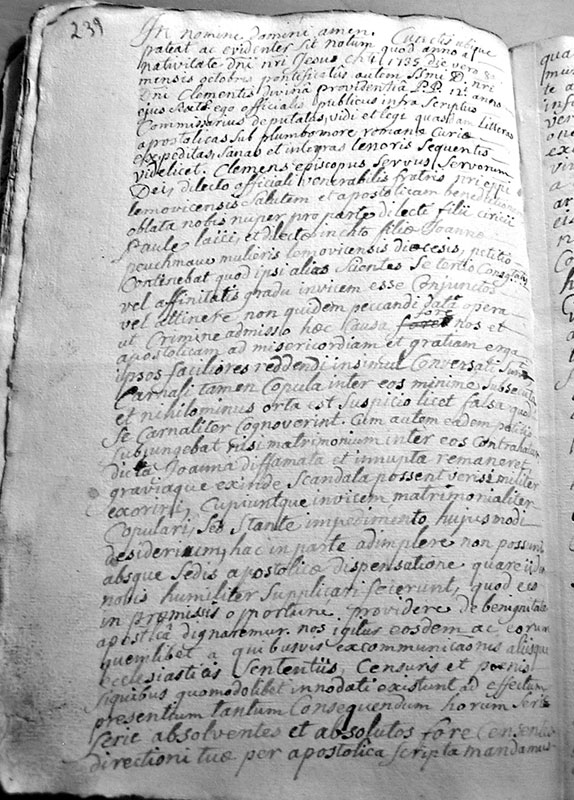 239
In nomine domini amen. Cunctis ubique
pateat ac evidenter sit notum quod anno a
nativitate dni nri Jesus chti 1735 die vero 8a
mensis octobris pontificatus autem SSmi D. nri
Dni Clementis divina providentia P.P. 12i anno
ejus Sexto ego officialis publicus infra Scriptus
Commissarius deputatus, vidi et legi quasdam litteras
apostolicas Sub plumbo more romanæ Curiæ
expeditas, Sanas et integras tenoris Sequentis
videlicet. Clemens episcopus Servus Servorum
Dei, dilecto officiali venerabilis fratris nri epi
lemovicensis Salutem et apostolicam benedictionem
oblata nobis nuper pro parte dilecti filii
Paule laici, et dilectæ in chto filiæ Joannæ
peuchmaux mulieris lemovicensis diœcesis, petitio
Continebat quod ipsi alias Scientes Se tertio Consang.
vel affinitatis gradu invicem esse Conjunctos
vel attinere non quidem peccandi data opera
ut Crimine admisso hæc Causa foret fore nos et
apostolicam ad misericordiam et gratiam erga
ipsos faciliores reddendi insimul Conversati Sunt
Carnali tamen Copula inter eos minime Subsecuta
et nihilominus orta est Suspicio licet falsa quod
Se Carnaliter cognoverint. Cum autem eadem petitio
Subjungebat nisi matrimonium inter eos Contrahatur
dicta Joanna diffamata et innupta remaneret,
graviaque exinde Scandala possent verisimiliter
exoriri, Cupiuntque invicem matrimonialiter
Copulari, Sed Stante impedimento hujusmodi
desiderium hac in parte adimplere non possunt
absque Sedis apostolicæ dispensatione quare iidem
nobis humiliter Supplicari fecerunt, quod eis
in præmissis opportune providere de benignitate
apostica dignaremur. nos igitur eosdem ac eorum
quemlibet a quibusvis excommunicaonis aliisque
ecclesiasticis Sententiis, Censuris et pœnis
Siquibus quomodolibet innodati existunt ad effectum
presentium tantum Consequendum horum Serie
Serie absolventes et absolutos fore Censentes
directioni tuæ per apostolica Scripta mandamus